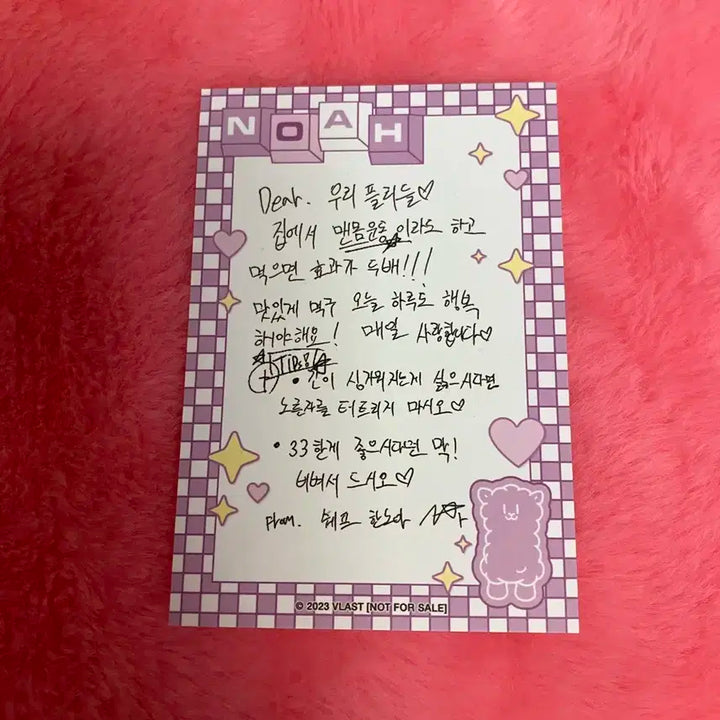 NOAH
Dear. 우리 플리들♡
집에서 맨몸운동이라도 하고
먹으면 효과가 두배!!!
맛있게 먹구 오늘 하루도 행복
하야해요! 매일 사랑합니다♡
+ TIP
• 간이 싱거워지는게 싫으시다면
노른자를 터트리지 마시오♡
• 33한게 좋으시다면 막!
비벼서 드시오♡
From. 쉐프 한노아
© 2023 VLAST [NOT FOR SALE]